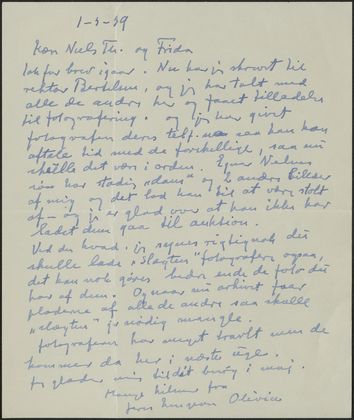 1-4-59
Kære Niels Th. og Frida
Tak for brev igaar. Nu har jeg skrevet til
rektor Bertelsen, og jeg har talt med
alle de andre her og faaet tilladelse
til fotografering. og jeg har givet
fotografen deres telf. saa han kan
aftale tid med de forskellige, saa nu
skulle det være i orden. Ejnar Nielsen
har stadig "dans" og 2 andre billeder
af mig og det lod han til at være stolt
af - og jeg er glad over at han ikke har
ladet dem gaa til auktion.
Ved du hvad. jeg synes rigtignok du
skulle lade "Slagten" fotografere ogsaa,
det kan nok gøres bedre end de foto du
har af dem. Og naar nu arkivet faar
pladerne af alle de andre saa skulle
"slagten" jo nødig mangle.
fotografen har meget travlt men de
kommer da her i næste uge.
Jeg glæder mig til dit besøg i maj.
Mange hilsner fra
Jeres hengivne Olivia